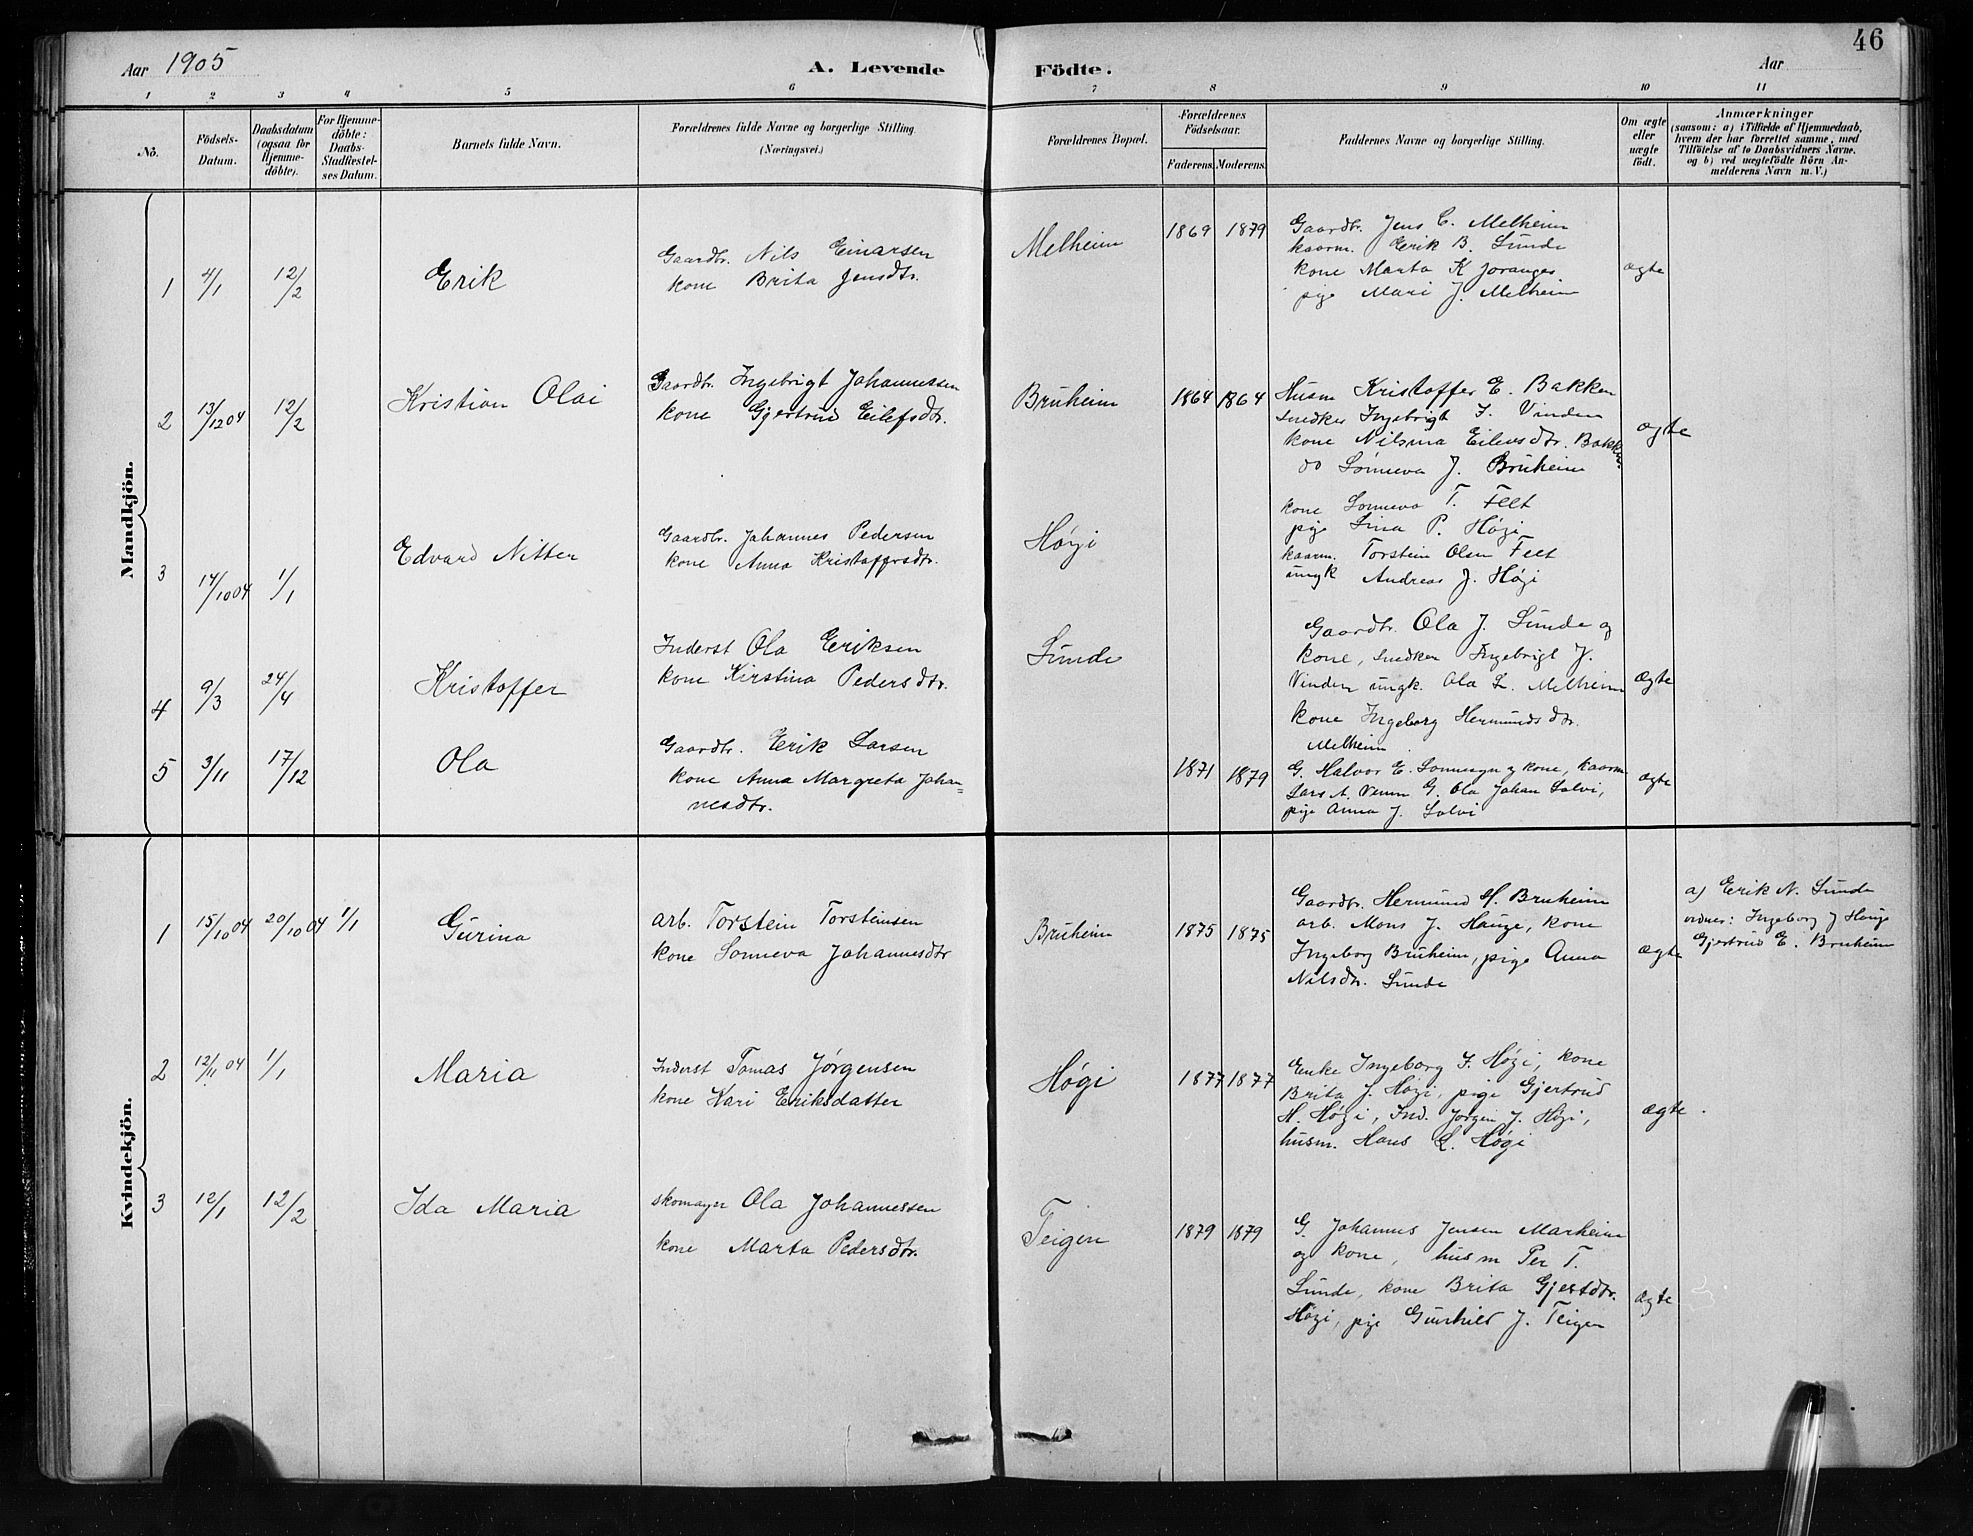 46
Aar 1905
A. Levende Födte.
Aar
1 2 3 4 5 6 7 8 9 10 11
Nô.
Födsels-Datum.
Daabsdatum (ogsaa for Hjemme-döbte).
For Hjemme-döbte: Daabs-Stadfæstel-ses Datum.
Barnets fulde Navn.
Forældrenes fulde Navne og borgerlige Stilling.
(Næringsvei.)
Forældrenes Bopæl.
Forældrenes Födselsaar.
Faderens. Moderens.
Faddernes Navne og borgerlige Stilling.
Om ægte eller uægte födt.
Anmærkninger
(saasom: a) i Tilfælde af Hjemmedaab,
hvem der har forrettet samme, med
Tilföielse af to Daabsvidners Navne.
og b) ved uægtefödte Börn An-
melderens Navn m.V.)
Mandkjön.
1 4/1 12/2 Erik
Gaardbr. Nils Einarsen
kone Brita Jensdtr.
Melheim 1869 1879
Gaardbr. Jens C. Melheim
kaarm. Erik B. Sunde
kone Marta K Joranger
pige Mari J. Melheim
ægte
2 13/12 04 12/2 Kristian Olai
Gaardbr. Ingebrigt Johannessen
kone Gjertrud Eilefsdtr.
Bruheim 1864 1864
Husm Kristoffer E. Bakken
Snedker Ingebrigt J. Vinden
kone Nilsina Eilevsdtr. Bakken
do Sønneva J. Bruheim
ægte
3 14/10 04 1/1 Edvard Nitter
Gaardbr. Johannes Pedersen
kone Anna Kristoffersdtr.
Høgi
kone Sonneva T. Felt
pige Sina P. Høgi
kaarm. Torstein Olsen Felt
ungk Andreas J. Høgi
4 9/3 24/4 Kristoffer
Inderst Ola Eriksen
kone Kirstina Pedersdtr.
Sunde
Gaardbr. Ola J. Sunde og
kone, Snedker Ingebrigt J.
Vinden ungk. Ola L. Melheim
kone Ingeborg Hermundsdtr.
Melheim.
ægte
5 3/11 17/12 Ola
Gaardbr. Erik Larsen
kone Anna Margreta Johan=
nesdtr.
1871 1879
G. Halvor E. og kone, kaarm
Lars A. G. Ola Johan Solvi,
pige Anna J. Solvi
ægte
Kvindekjön.
1 15/10 04 20/10 04 1/1 Gurina
arb. Torstein Torsteinsen
kone Sonneva Johannesdtr
Bruheim 1875 1875
Gaardbr. Hermund H. Bruheim
arb. Mons J. Hauge, kone
Ingeborg Bruheim, pige Anna
Nilsdtr. Sunde
ægte
a) Erik N. Sunde
vidner: Ingeborg J Hauge
Gjertrud E. Bruheim
2 12/11 04 1/1 Maria
Inderst Tomas Jørgensen
kone Kari Eriksdatter
Høgi 1877 1877
Enke Ingeborg J. Høgi, kone
Brita J. Høgi, pige Gjertrud
H. Høgi, Ind. Jørgen J. Høgi,
husm. Hans L. Høgi
ægte.
3 12/1 12/2 Ida Maria
skomager Ola Johannessen
kone Marta Pedersdtr.
Teigen 1879 1879
G. Johannes Jensen Marheim
og kone, husm Per T.
Sunde, kone Brita Gjertdtr.
Høgi, pige Gunhild J. Teigen
ægte